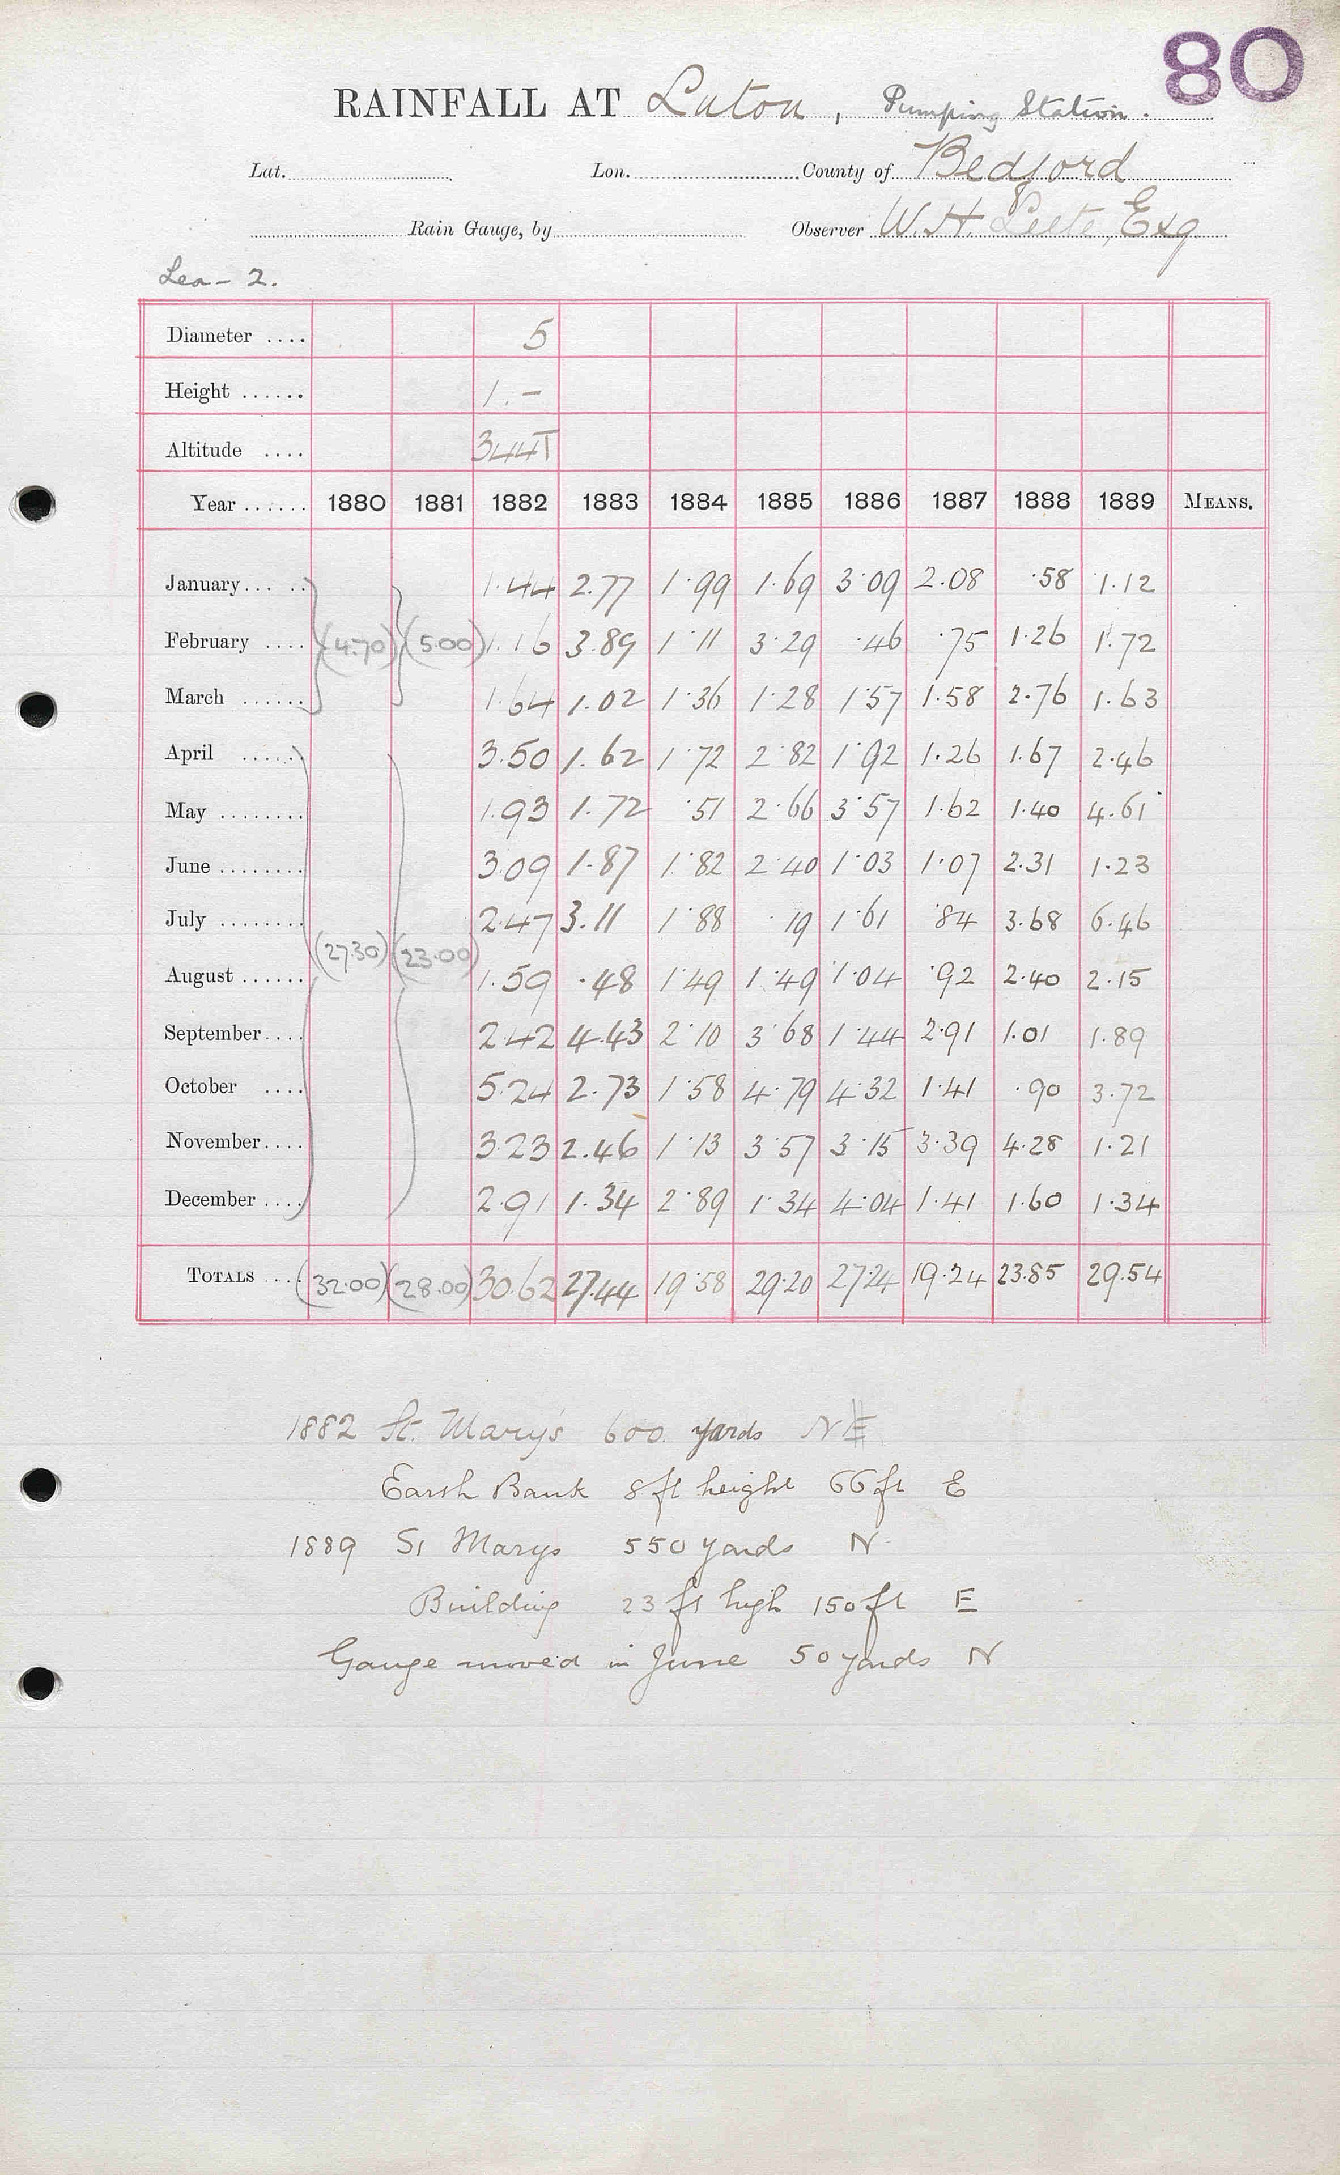 80
RAINFALL AT Luton, Pumping Station.
Lat. Lon. County of Bedford
Rain Gauge, by Observer W. H. Leete, Esq
Lea - 2.
Diameter .... 5
Height ...... 1.-
Altitude .... 344T
Year ...... 1880 1881 1882 1883 1884 1885 1886 1887 1888 1889 MEANS.
January 1.44 2.77 1.99 1.69 3.09 2.08 .58 1.12
February .... (4.70) (5.00) 1.16 3.89 1.11 3.29 .46 .75 1.26 1.72
March ...... 1.64 1.02 1.36 1.28 1.57 1.58 2.76 1.63
April ...... 3.50 1.62 1.72 2.82 1.92 1.26 1.67 2.46
May ........ 1.93 1.72 .51 2.66 3.57 1.62 1.40 4.61
June ........ 3.09 1.87 1.82 2.40 1.03 1.07 2.31 1.23
July ........ 2.47 3.11 1.88 .19 1.61 .84 3.68 6.46
(27.30) (23.00)
August ...... 1.59 .48 1.49 1.49 1.04 .92 2.40 2.15
September .... 2.42 4.43 2.10 3.68 1.44 2.91 1.01 1.89
October .... 5.24 2.73 1.58 4.79 4.32 1.41 .90 3.72
November .... 3.23 2.46 1.13 3.57 3.15 3.39 4.28 1.21
December .... 2.91 1.34 2.89 1.34 4.04 1.41 1.60 1.34
TOTALS .... (32.00) (28.00) 30.62 27.44 19.58 29.20 27.24 19.24 23.85 29.54
1882 St. Mary's 600 yards NE
Earth Bank 8ft height 66ft E
1889 St Marys 550 yards N.
Building 23 ft high 150 ft E
Gauge moved in June 50 yards N